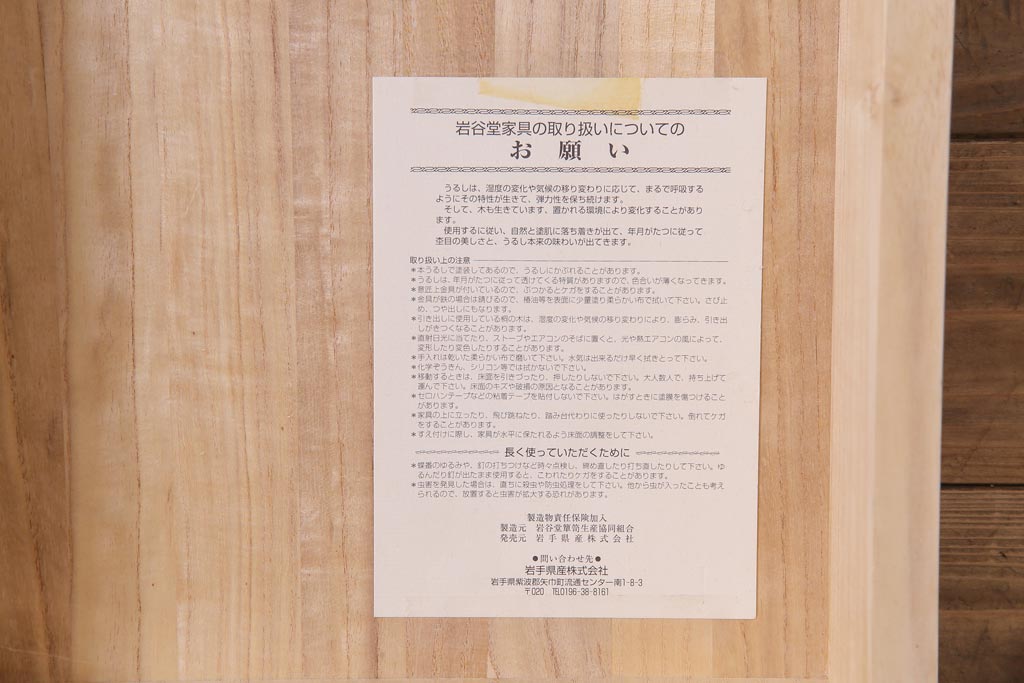 岩谷堂家具の取り扱いについての
お願い
うるしは、湿度の変化や気候の移り変わりに応じて、まるで呼吸する
ようにその特性が生きて、弾力性を保ち続けます。
そして、木も生きています、置かれる環境により変化することがあり
ます。
使用するに従い、自然と塗肌に落ち着きが出て、年月がたつに従って
杢目の美しさと、うるし本来の味わいが出てきます。
取り扱い上の注意
＊本うるしで塗装してあるので、うるしにかぶれることがあります。
＊うるしは、年月がたつに従って透けてくる特質がありますので、色合いが薄くなってきます。
＊意匠上金具が付いているので、ぶつかるとケガをすることがあります。
＊金具が鉄の場合は錆びるので、椿油等を表面に少量塗り柔らかい布で拭いて下さい。さび止
め、つや出しにもなります。
＊引き出しに使用している桐の木は、湿度の変化や気候の移り変わりにより、膨らみ、引き出
しがきつくなることがあります。
＊直射日光に当てたり、ストーブやエアコンのそばに置くと、光や熱エアコンの風によって、
変形したり変色したりすることがあります。
＊手入れは乾いた柔らかい布で磨いて下さい。水気は出来るだけ早く拭きとって下さい。
＊化学ぞうきん、シリコン等では拭かないで下さい。
＊移動するときは、床面を引きづったり、押したりしないで下さい。大人数人で、持ち上げて
運んで下さい。床面のキズや破損の原因となることがあります。
＊セロハンテープなどの粘着テープを貼付しないで下さい。はがすときに塗膜を傷つけること
があります。
＊家具の上に立ったり、飛び跳ねたり、踏み台代わりに使ったりしないで下さい。倒れてケガ
をすることがあります。
＊すえ付けに際し、家具が水平に保たれるよう床面の調整をして下さい。
長く使っていただくために
＊蝶番のゆるみや、釘の打ちつけなど時々点検し、締め直したり打ち直したりして下さい。ゆ
るんだり釘が出たまま使用すると、こわれたりケガをすることがあります。
＊虫害を発見した場合は、直ちに殺虫や防虫処理をして下さい。他から虫が入ったことも考え
られるので、放置すると虫害が拡大する恐れがあります。
製造物責任保険加入
製造元 岩谷堂簞笥生産協同組合
発売元 岩手県産株式会社
●問い合わせ先●
岩手県産株式会社
岩手県紫波郡矢巾町流通センター南1-8-3
〒020 TEL0196-38-8161